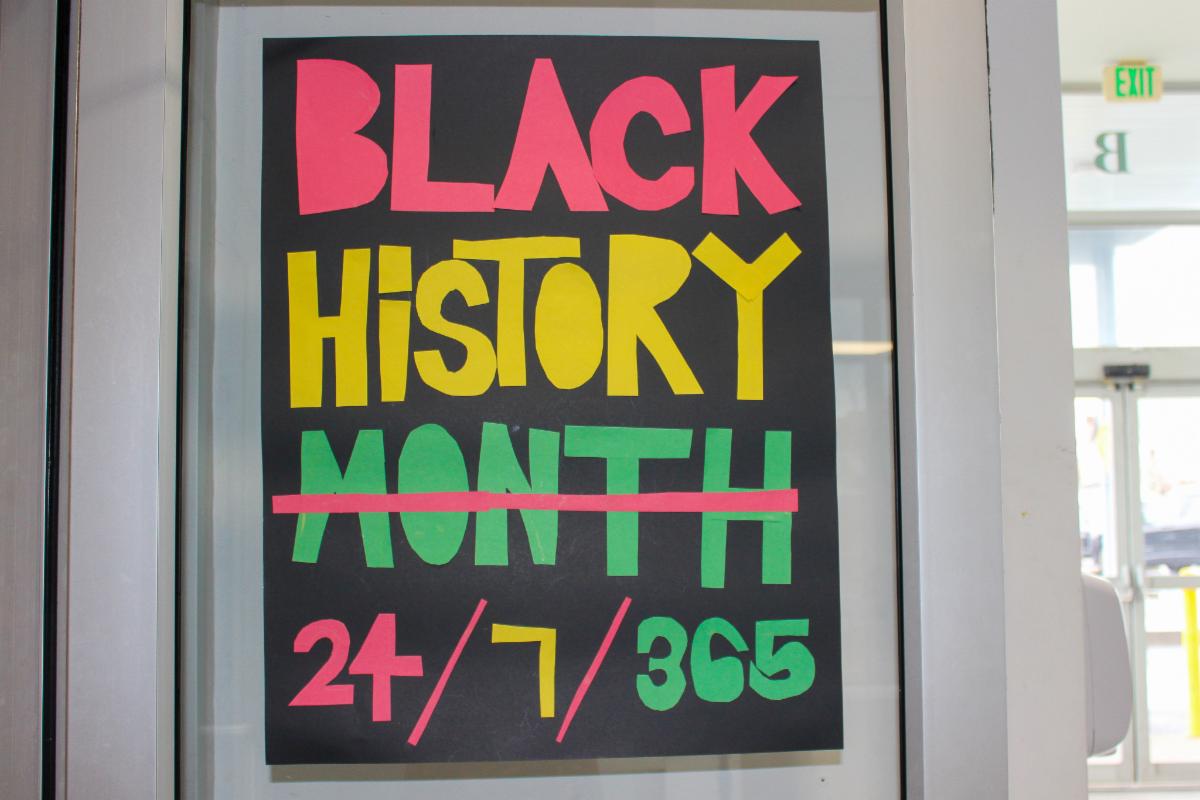 BLACK
HiSTORY
MONTH
24/7/365
EXIT
B